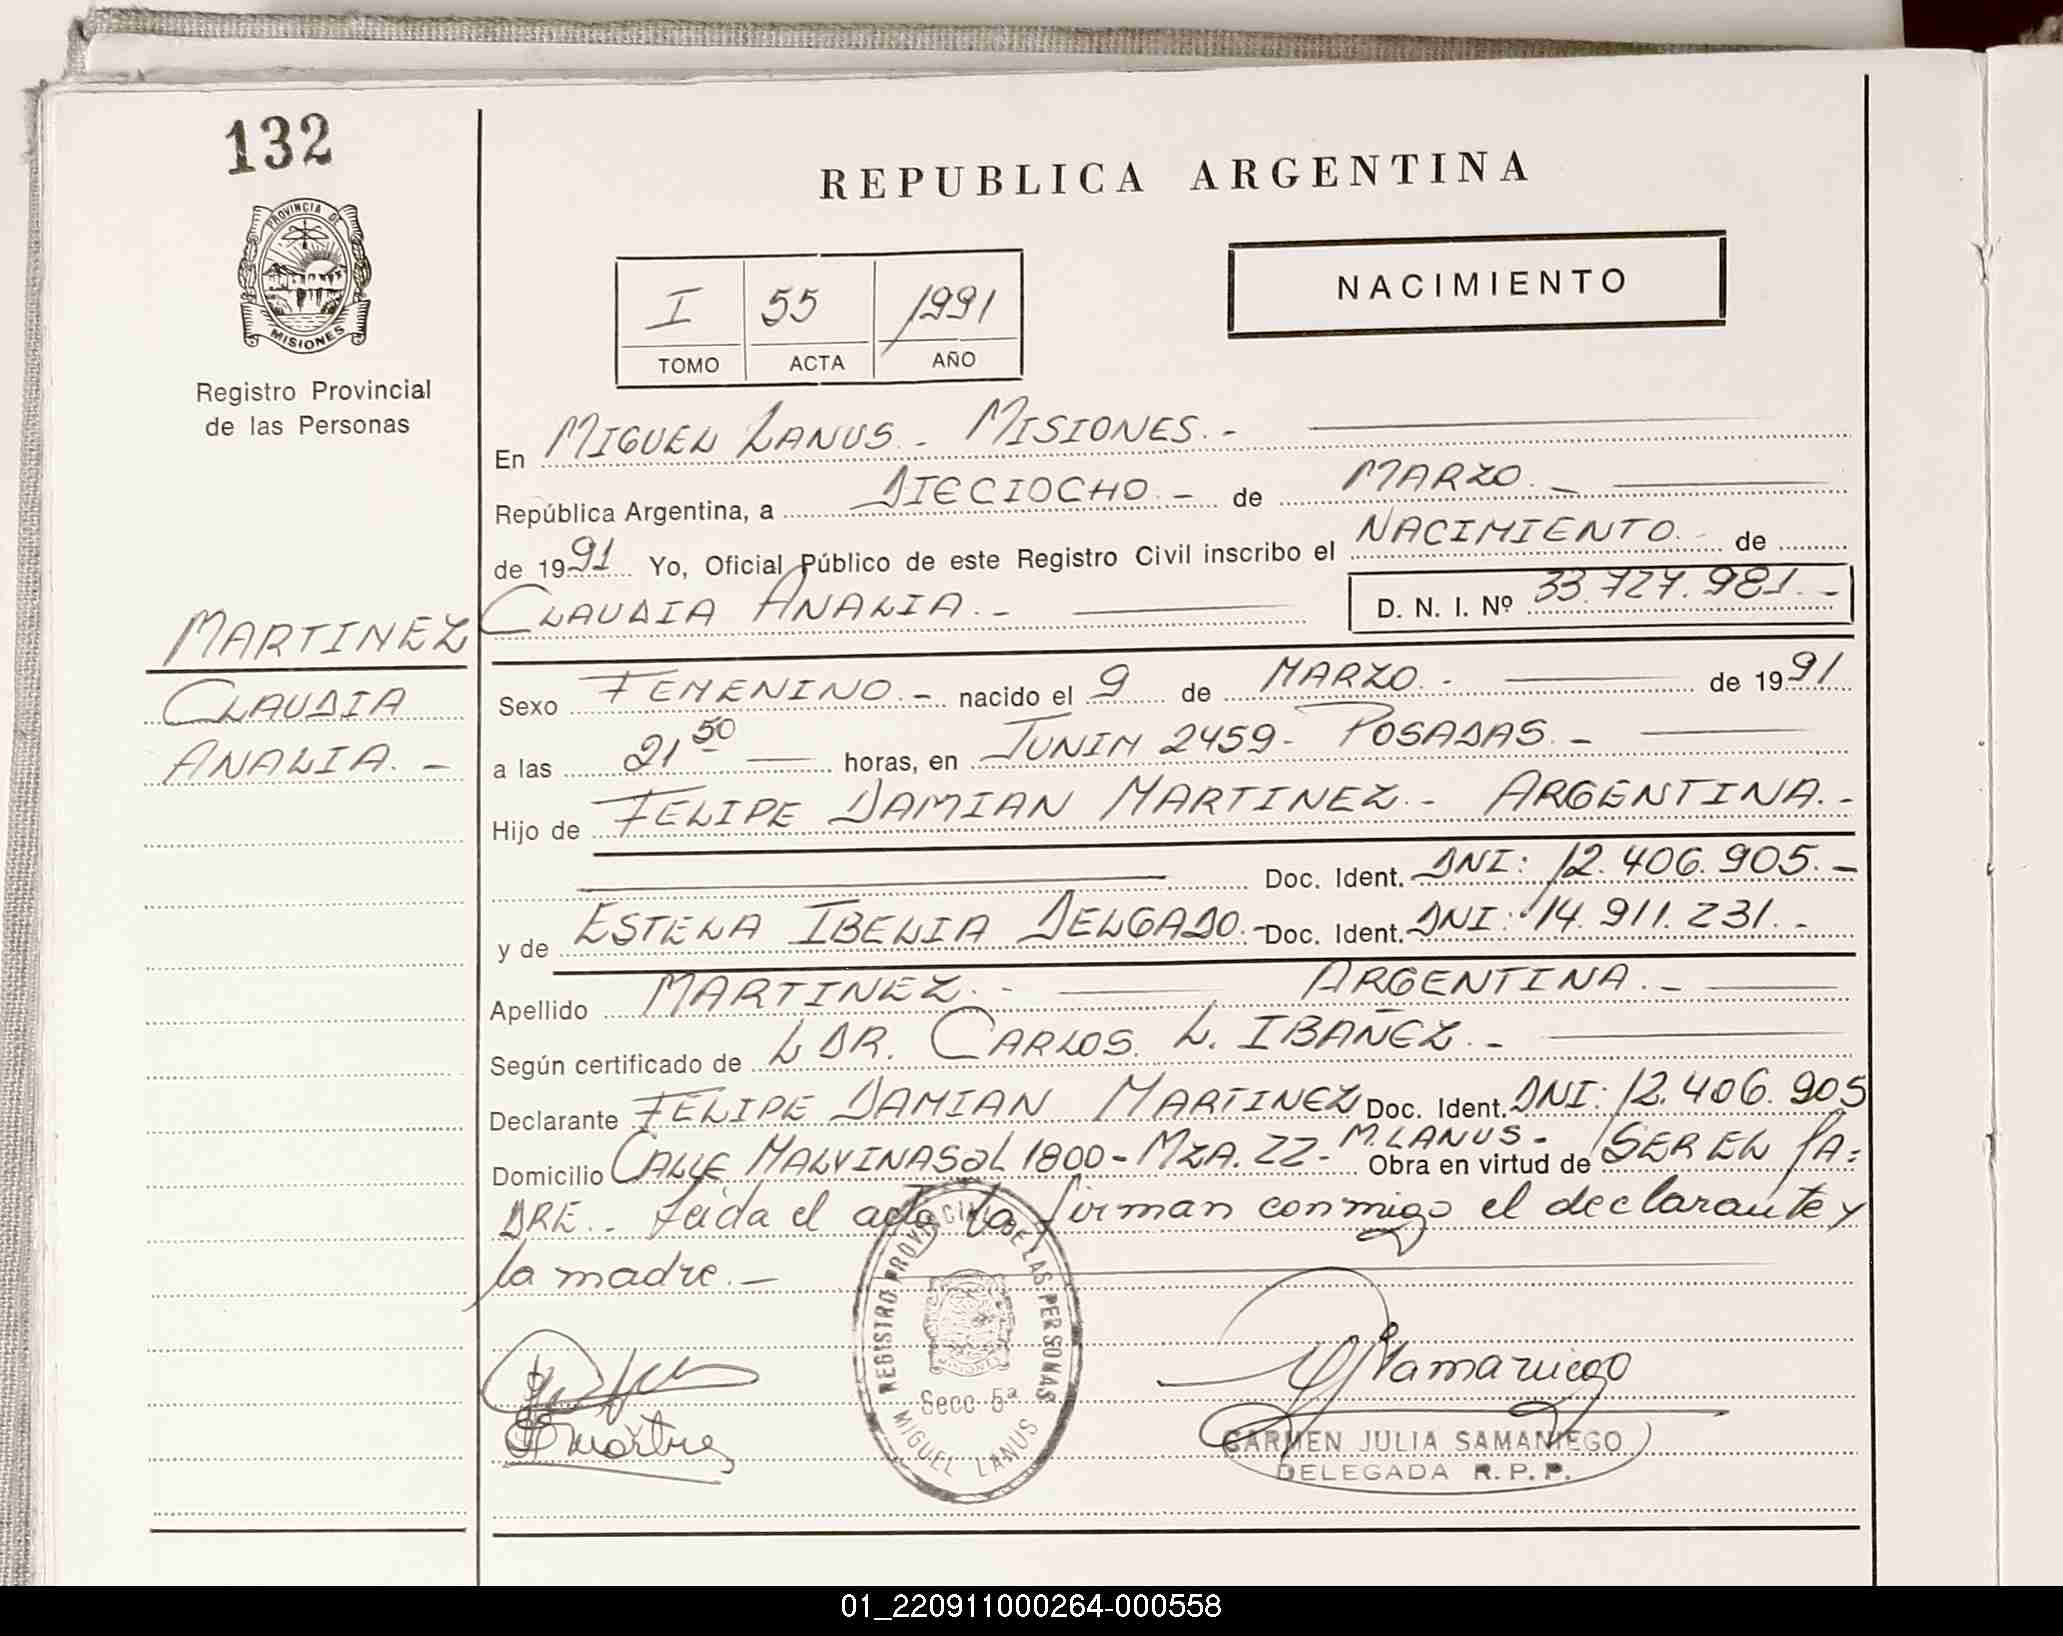 132
REPUBLICA ARGENTINA
PROVINCIA DE
MISIONES
Registro Provincial
de las Personas
I 55 1991
TOMO ACTA AÑO
NACIMIENTO
En MIGUEL LANUS.- MISIONES.-
República Argentina, a DIECIOCHO.- de MARZO.-
de 1991 Yo, Oficial Público de este Registro Civil inscribo el NACIMIENTO.- de
CLAUDIA ANALIA.- D. N. I. Nº 33.727.981.-
MARTINEZ
CLAUDIA
ANALIA.-
Sexo FEMENINO.- nacido el 9 de MARZO.- de 1991
a las 21 50 horas, en JUNIN 2459- POSADAS.-
Hijo de FELIPE DAMIAN MARTINEZ.- ARGENTINA.-
Doc. Ident. DNI: 12.406.905.-
y de ESTELA IBELIA DELGADO.- Doc. Ident. DNI: 14.911.231.-
Apellido MARTINEZ.- ARGENTINA.-
Según certificado de L DR. CARLOS. L. IBAÑEZ.-
Declarante FELIPE DAMIAN MARTINEZ Doc. Ident. DNI: 12.406.905
Domicilio CALLE MALVINAS al 1800- MZA. 22- M. LANUS.- Obra en virtud de SER EL PA=
DRE.- Leida el acta la firman conmigo el declarante y
la madre.-
REGISTRO PROVINCIAL DE LAS PERSONAS
MISIONES
Secc 5ª
MIGUEL LANUS
Samaniego
CARMEN JULIA SAMANIEGO
DELEGADA R.P.P.
01_220911000264-000558